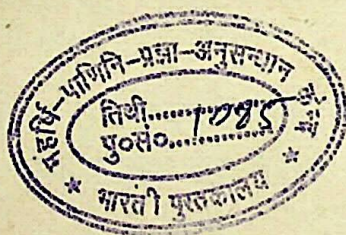 महर्षि-पाणिनि-प्रज्ञा-अनुसन्धान केन्द्र
तिथी..............
पु०सं०..1785..
* भारती पुस्तकालय *